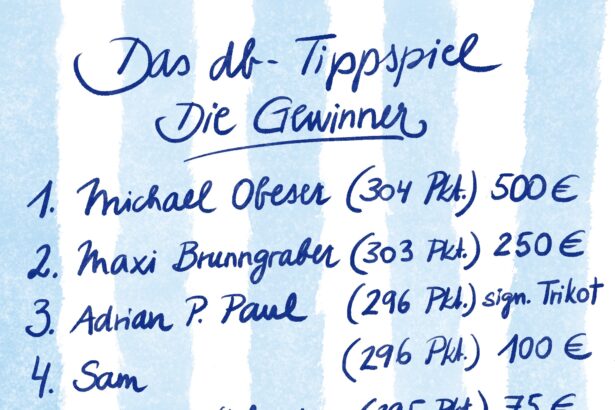 Das db-Tippspiel
Die Gewinner
1. Michael Obeser (304 Pkt.) 500 €
2. Maxi Brunngraber (303 Pkt.) 250 €
3. Adrian P. Paul (296 Pkt.) sign. Trikot
4. Sam (296 Pkt.) 100 €
(295 Pkt.) 75 €